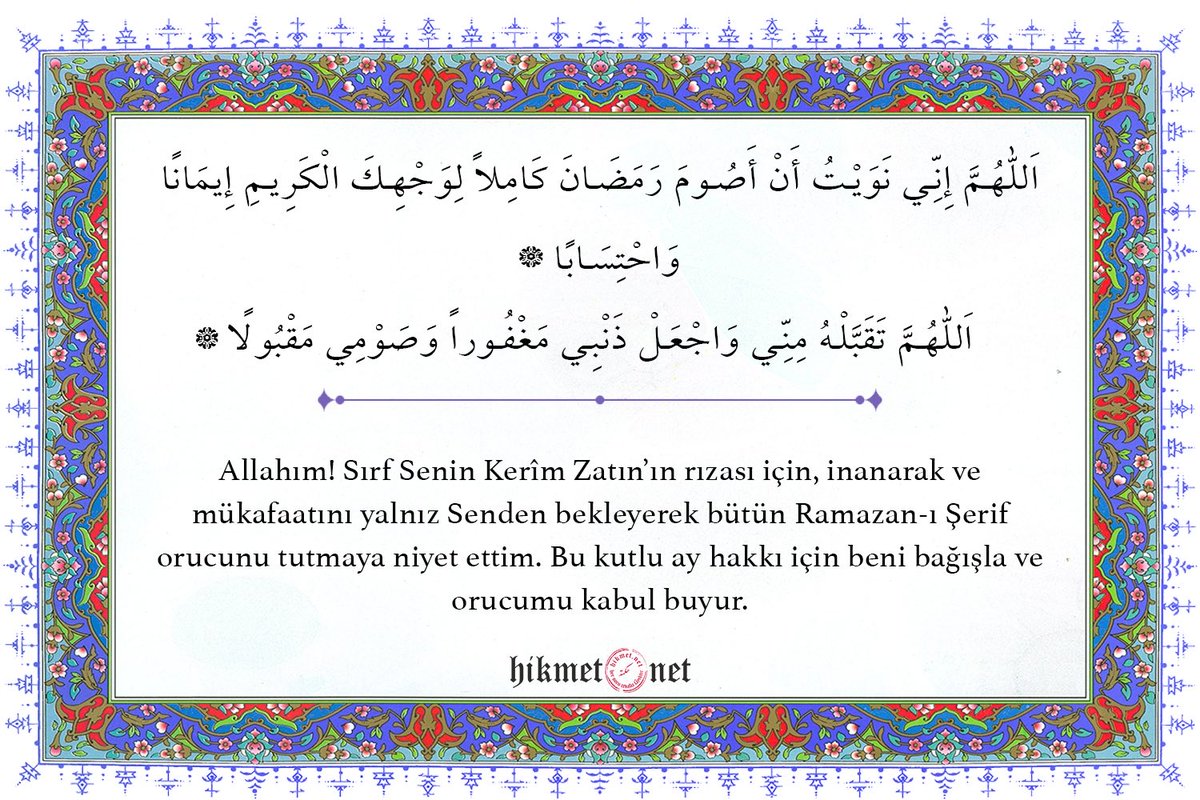 اَللّٰهُمَّ إِنِّي نَوَيْتُ أَنْ أَصُومَ رَمَضَانَ كَامِلاً لِوَجْهِكَ الْكَرِيمِ إِيمَانًا
وَاحْتِسَابًا ۞
اَللّٰهُمَّ تَقَبَّلْهُ مِنِّي وَاجْعَلْ ذَنْبِي مَغْفُوراً وَصَوْمِي مَقْبُولًا ۞
Allahım! Sırf Senin Kerîm Zatın’ın rızası için, inanarak ve
mükafaatını yalnız Senden bekleyerek bütün Ramazan-ı Şerif
orucunu tutmaya niyet ettim. Bu kutlu ay hakkı için beni bağışla ve
orucumu kabul buyur.
hikmet net